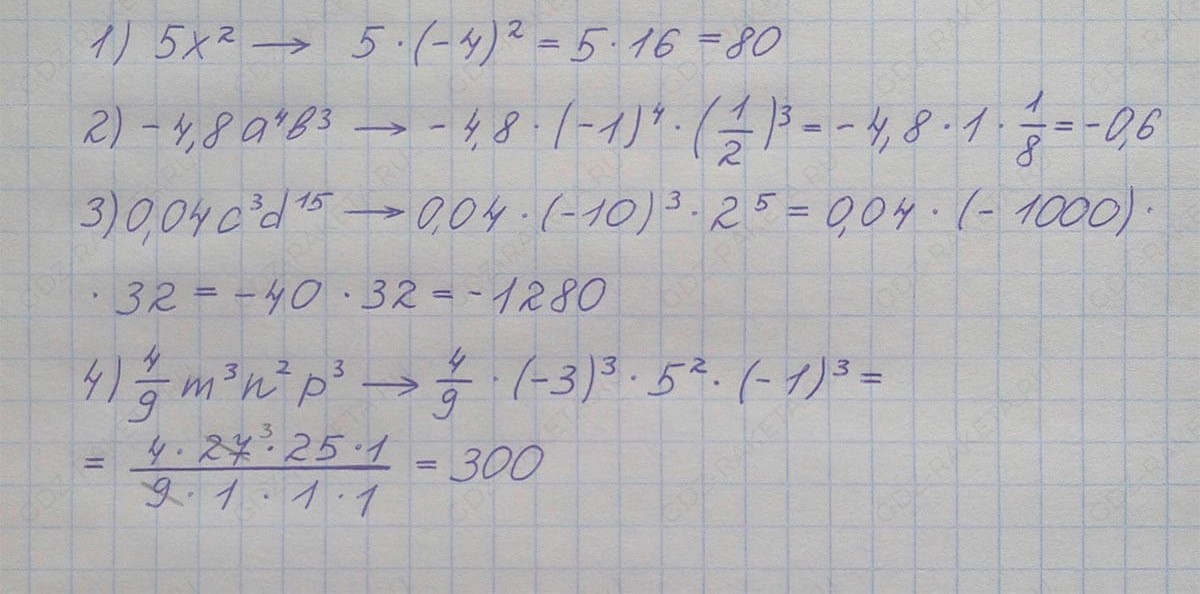 1) 5x² → 5·(-4)² = 5·16 = 80
2) -4,8a⁴b³ → -4,8·(-1)⁴·(1/2)³ = -4,8·1·1/8 = -0,6
3) 0,04c³d¹⁵ → 0,04·(-10)³·2⁵ = 0,04·(-1000)·
·32 = -40·32 = -1280
4) 4/9 m³n²p³ → 4/9·(-3)³·5²·(-1)³ =
= 4·27³·25·1 / 9·1·1·1 = 300